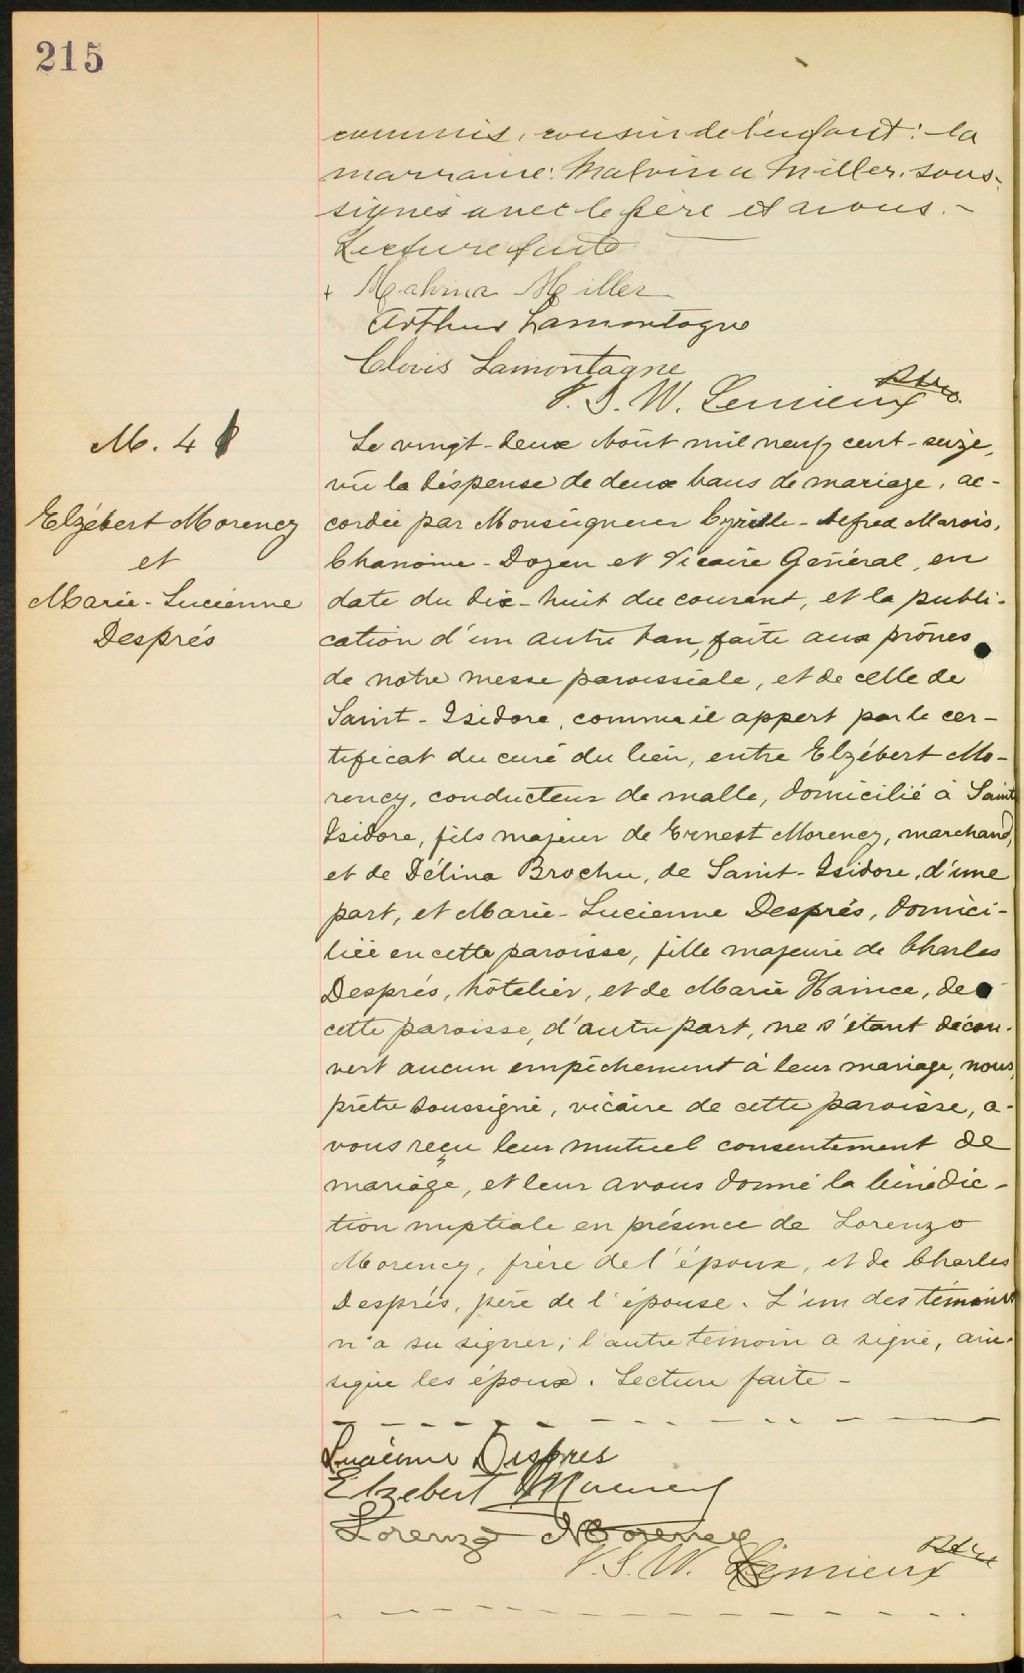 215
commis, cousin de l'enfant: la
marraine: Malvina Miller. sous-
signés avec le père et nous. -
Lecture faite
+ Malvina Miller
Arthur Lamontagne
Clovis Lamontagne
V. J. W. Lemieux Ptre
M. 4
Elzébert Morency
et
Marie-Lucienne
Després
Le vingt-deux Août mil neuf cent-seize,
vû la dispense de deux bans de mariage, ac-
cordée par Monseigneur Cyrille-Alfred Marois,
Chanoine-Doyen et Vicaire Général, en
date du dix-huit du courant, et la publi-
cation d'un autre ban, faite aux prônes
de notre messe paroissiale, et de celle de
Saint-Isidore, comme il appert par le cer-
tificat du curé du lieu, entre Elzébert Mo-
rency, conducteur de malle, domicilié à Saint
Isidore, fils majeur de Ernest Morency, marchand,
et de Délina Brochu, de Saint-Isidore, d'une
part, et Marie-Lucienne Després, domici-
liée en cette paroisse, fille majeure de Charles
Després, hôtelier, et de Marie Hamee, de
cette paroisse, d'autre part, ne s'étant décou-
vert aucun empêchement à leur mariage, nous,
prêtre soussigné, vicaire de cette paroisse, a-
vons reçu leur mutuel consentement de
mariage, et leur avons donné la bénédic-
tion nuptiale en présence de Lorenzo
Morency, frère de l'époux, et de Charles
Després, père de l'épouse. L'un des témoins
n'a su signer; l'autre témoin a signé, ain-
sique les époux. Lecture faite -
Lucienne Després
Elzebert Morency
Lorenzo Morency
V. J. W. Lemieux Ptre